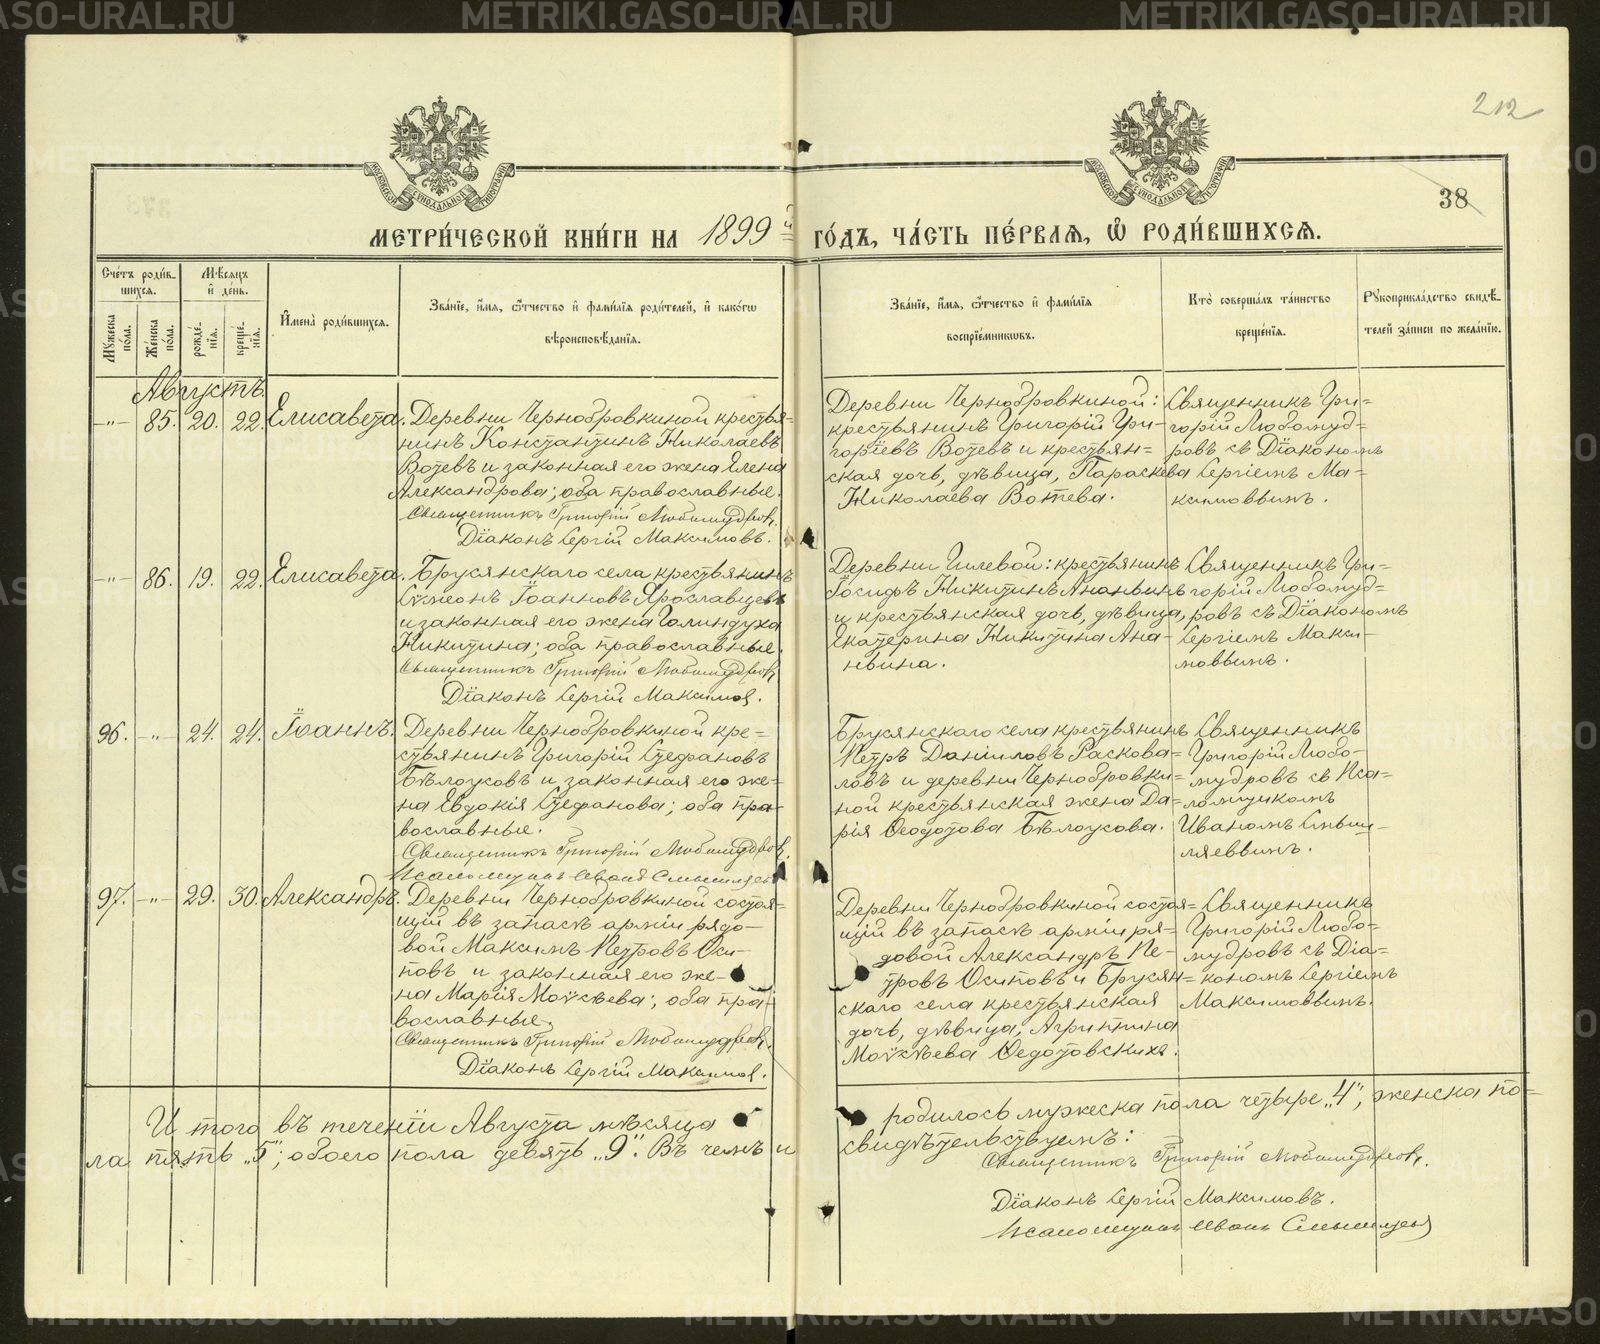 METRIKI.GASO-URAL.RU
212
38
МОСКОВСКОЙ СѴНОДАЛЬНОЙ ТИПОГРАФІИ
МОСКОВСКОЙ СѴНОДАЛЬНОЙ ТИПОГРАФІИ
МЕТРИ́ЧЕСКОЙ КНИ́ГИ НА 1899й ГО́ДЪ, ЧА́СТЬ ПЕ́РВАЯ, Ѡ҆ РОДИ́ВШИХСѦ.
Сче́тъ роди́в-
шихсѧ.
Мꙋ́жеска по́ла.
Же́нска по́ла.
М́ѣсѧцъ
и҆ де́нь.
рожде́-
нїѧ.
креще́-
нїѧ.
И҆мена̀ роди́вшихсѧ.
Зва́нїе, и҆́мѧ, ѻ҆́тчество и҆ фами́лїѧ роди́телей, и҆ како́гѡ
вѣроисповѣ́данїѧ.
Зва́нїе, и҆́мѧ, ѻ҆́тчество и҆ фами́лїѧ
воспрїе́мникѡвъ.
Кто̀ соверша́лъ та́инство
креще́нїѧ.
Рꙋкоприкла́дство свидѣ́-
телей за́писи по жела́нїю.
Августъ
-"- 85. 20. 22. Елисавета.
Деревни Чернобровкиной крестья-
нинъ Константинъ Николаевъ
Вотевъ и законная его жена Елена
Александрова; оба православные.
Священникъ Григорій Любомудровъ.
Діаконъ Сергій Максимовъ.
Деревни Чернобровкиной:
крестьянинъ Григорій Гри-
горіевъ Вотевъ и крестьян-
ская дочь, дѣвица, Параскева
Николаева Вотева.
Священникъ Гри-
горій Любомуд-
ровъ съ Діакономъ
Сергіемъ Ма-
ксимовымъ.
-"- 86. 19. 22. Елисавета.
Брусянскаго села крестьянинъ
Сѵмеонъ Іоанновъ Ярославцевъ
и законная его жена Галиндуха
Никитина; оба православные.
Священникъ Григорій Любомудровъ
Діаконъ Сергій Максимов.
Деревни Гилевой: крестьянинъ
Іосифъ Никитинъ Ананьинъ
и крестьянская дочь, дѣвица,
Екатерина Никитина Ана-
ньина.
Священникъ Гри-
горій Любомуд-
ровъ съ Діакономъ
Сергіемъ Макси-
мовымъ.
96. -"- 24. 24. Іоаннъ.
Деревни Чернобровкиной кре-
стьянинъ Григорій Стефановъ
Бѣлоусовъ и законная его же-
на Евдокія Стефанова; оба пра-
вославные.
Священникъ Григорій Любомудровъ.
Псаломщикъ Иванъ Смышляевъ
Брусянскаго села крестьянинъ
Петръ Даніиловъ Раскова-
ловъ и деревни Чернобровки-
ной крестьянская жена Да-
рія Ѳеодотова Бѣлоусова.
Священникъ
Григорій Любо-
мудровъ съ Пса-
ломщикомъ
Иваномъ Смыш-
ляевымъ.
97. -"- 29. 30. Александръ.
Деревни Чернобровкиной состоя-
щій въ запасѣ арміи рядо-
вой Максимъ Петровъ Оси-
повъ и законная его же-
на Марія Моѵсеева; оба пра-
вославные.
Священникъ Григорій Любомудровъ.
Діаконъ Сергій Максимов.
Деревни Чернобровкиной состоя-
щій въ запасѣ арміи ря-
довой Александръ Пе-
тровъ Осиповъ и Брусян-
скаго села крестьянская
дочь, дѣвица, Агриппина
Моѵсеева Ѳедотовскихъ.
Священникъ
Григорій Любо-
мудровъ съ Діа-
кономъ Сергіемъ
Максимовымъ.
И того въ теченіи Августа мѣсяца родилось мужеска пола четыре „4", женска по-
ла пять „5"; обоего пола девять „9". Въ чемъ и свидѣтельствуемъ:
Священникъ Григорій Любомудровъ.
Діаконъ Сергій Максимовъ.
Псаломщикъ Иванъ Смышляевъ